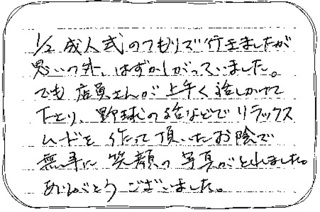 1/2成人式のつもりで行きましたが
思いの外、はずかしがっていました。
でも店員さんが上手く話しかけて
下さり、野球の話などでリラックス
ムードを作って頂いたお陰で
無事に笑顔の写真がとれました。
ありがとうございました。